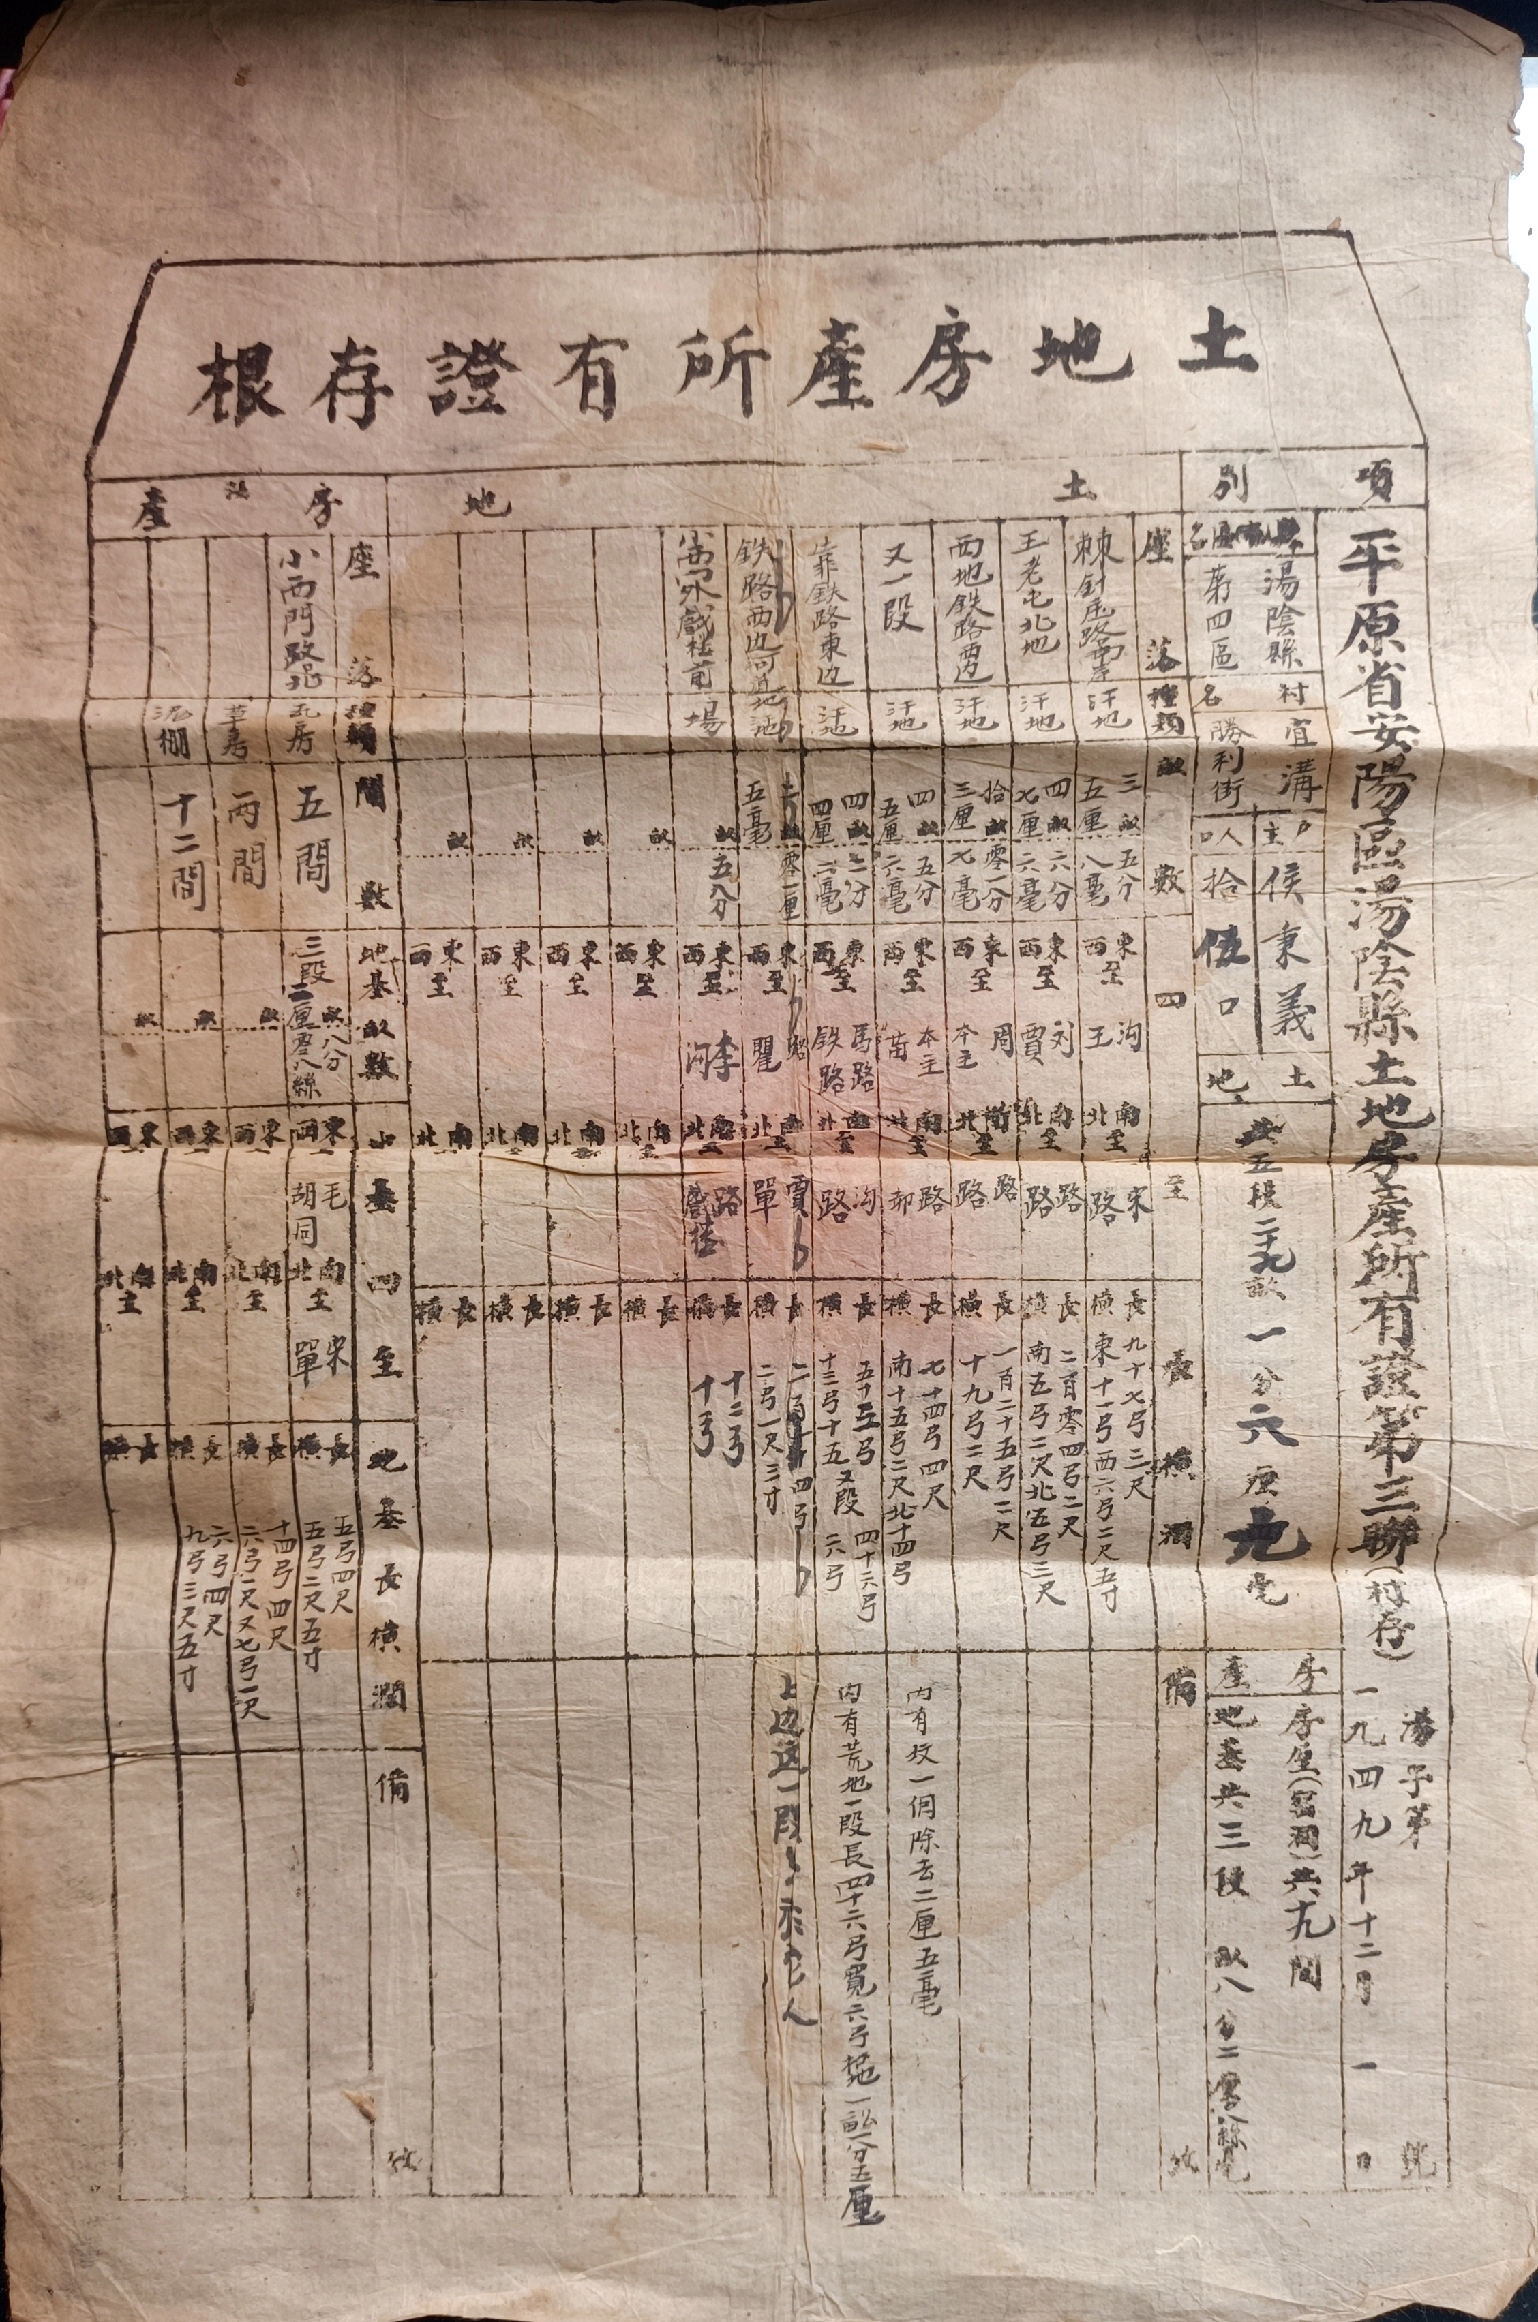 土地房產所有證存根
平原省安陽區湯陰縣土地房產所有證第三聯(村存)
湯字第 號
一九四九年十二月一日
項別
湯陰縣
第四區
村名
宜溝
勝利街
戶主
侯秉義
人口
拾伍口
土地
共五段二十九畝一分六厘九毫
房產
房屋(窑洞)共十九間
地基共三段 畝八分二厘
土地
座落 種類 畝數 四至 長橫濶 備攷
棘針庄路西 汗地 三畝五分五厘八毫 東西至 沟 王 南北至 宋 路 長橫 九十七弓三尺 東十一弓西六弓二尺五寸
王老屯北地 汗地 四畝六分七厘六毫 東西至 刘 賈 南北至 路 路 長橫 二百零四弓二尺 南五弓二尺北五弓三尺
西地鉄路西边 汗地 拾畝零一分三厘七毫 東西至 周 本主 南北至 路 路 長橫 一百二十五弓二尺 十九弓二尺
又一段 汗地 四畝五分五厘六毫 東西至 本主 苗 南北至 路 長橫 七十四弓四尺 南十五弓二尺北十四弓 內有坟一個除去二厘五毫
靠鉄路東边 汗地 四畝二分四厘二毫 東西至 馬路 鉄路 南北至 沟 路 長橫 五十五弓 十三弓十五 又段 四十六弓 六弓 內有荒地一段長四十六弓寬六弓 一畝一分五厘
鉄路西边 零一厘五毫 東西至 路 瞿 南北至 賈 單 長橫 四弓 二弓一尺三寸 上边这一段
小西門外戲楼前 場 畝五分 東西至 李 河 南北至 路 戲楼 長橫 十二弓 十弓
畝 東西至 南北至 長橫
畝 東西至 南北至 長橫
畝 東西至 南北至 長橫
畝 東西至 南北至 長橫
房產
座落 種類 間數 地基畝數 四至 地基長橫濶 備攷
小西門路北 瓦房 五間 三段 畝八分二厘零八絲 東西至 毛 胡同 南北至 宋 單 長橫 五弓四尺 五弓二尺五寸
草房 丙間 畝 東西 南北至 長橫 十四弓四尺 六弓二尺又七弓一尺
泥棚 十二間 畝 東西 南北至 長橫 六弓四尺 九弓三尺五寸
畝 東西 南北至 長橫